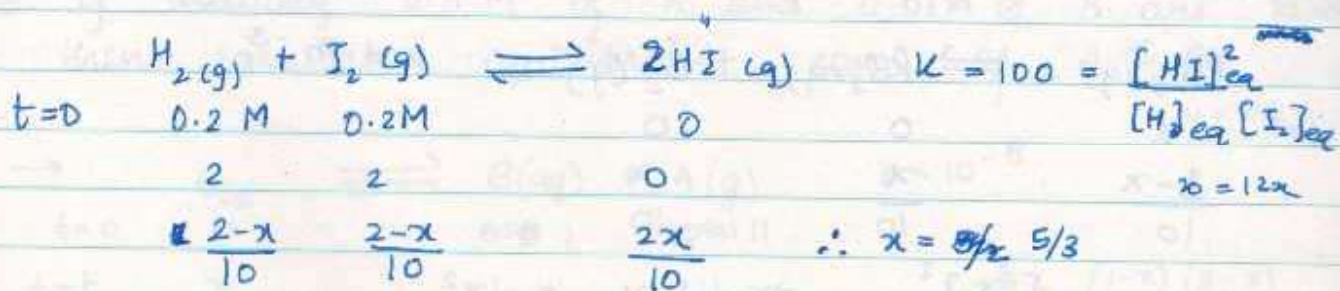 H₂(g) + I₂(g) ⇌ 2HI(g) K = 100 = [HI]²eq / [H₂]eq [I₂]eq
t=0 0.2 M 0.2M 0
2 2 0 20 = 12x
2-x/10 2-x/10 2x/10 ∴ x = 5/3